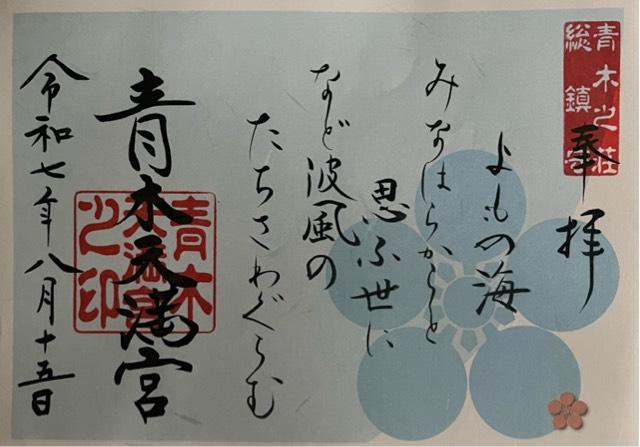 青木之荘
総鎮守
奉拝
よもの海
みなはらからと
思ふ世に
など波風の
たちさわぐらむ
青木天満宮
青木天満宮之印
令和七年八月十五日